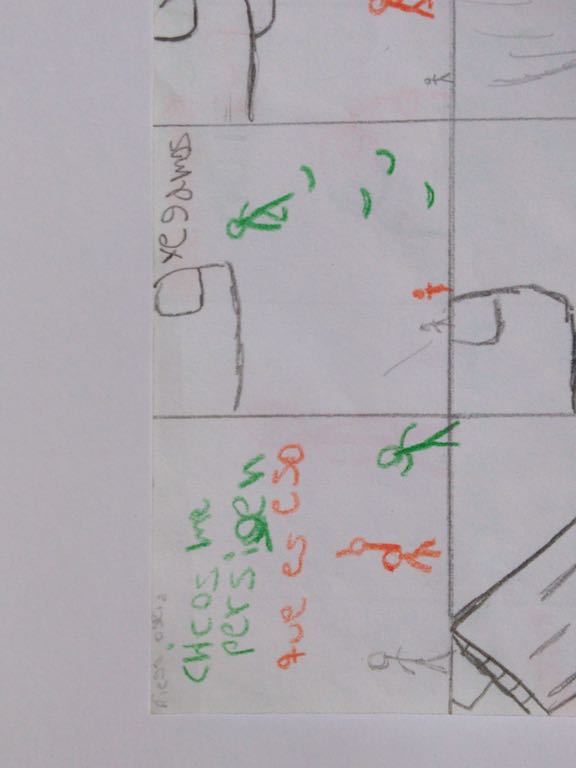 cHcos me
persigen
que es eso
xegamos